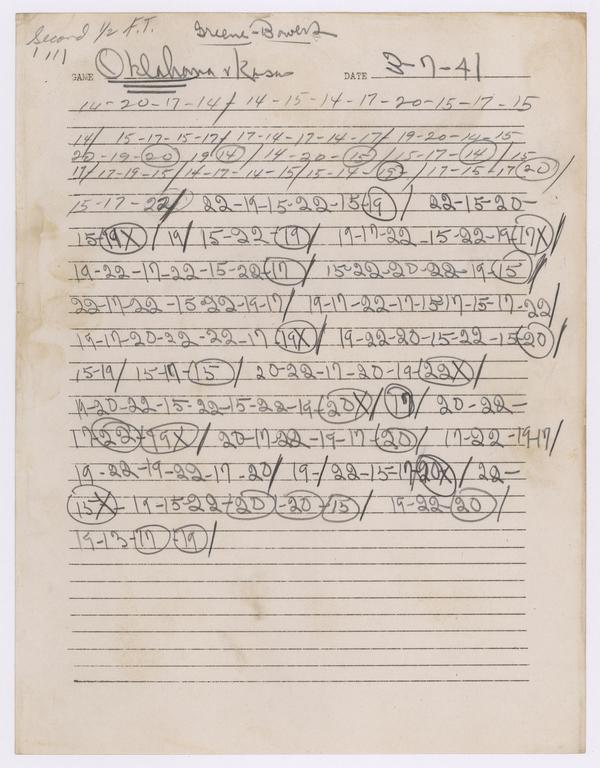 Second 1/2 F.T. Greene-Bowers
1111
GAME Oklahoma v Kansas DATE 3-7-41
14-20-17-14/ 14-15-14-17-20-15-17-15
14/ 15-17-15-17/ 17-14-17-14-17/ 19-20-14-15
20-19-20/ 19 14/ 14-20-15/ 15-17-14/ 15-
17/ 17-19-15/ 14-17-14-15/ 15-14-19/ 17-15-17 20/
15-17-22/ 22-19-15-22-15-19/ 22-15-20-
15-19X/ 19/ 15-22-19/ 19-17-22-15-22-19-17X/
19-22-17-22-15-22-17/ 15-22-20-22-19-15/
22-17-22-15-22-19-17/ 19-17-22-17-15-17-15-17-22/
19-17-20-22-22-17-19X/ 19-22-20-15-22-15-20/
15-19/ 15-17-15/ 20-22-17-20-19-22X/
19-20-22-15-22-15-22-19-20X/ 17/ 20-22-
17-22-19X/ 20-17-22-19-17-20/ 17-22-19-17/
19-22-19-22-17-20/ 19-/22-15-17-20X/ 22-
15X-19-15-22-20-20-15/ 19-22-20/
19-15-17-19/